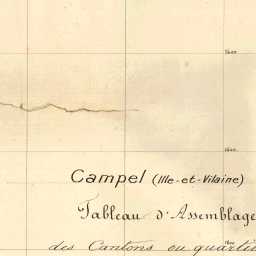 Campel (Ille-et-Vilaine)
Tableau d'Assemblage
des Cantons ou quartie